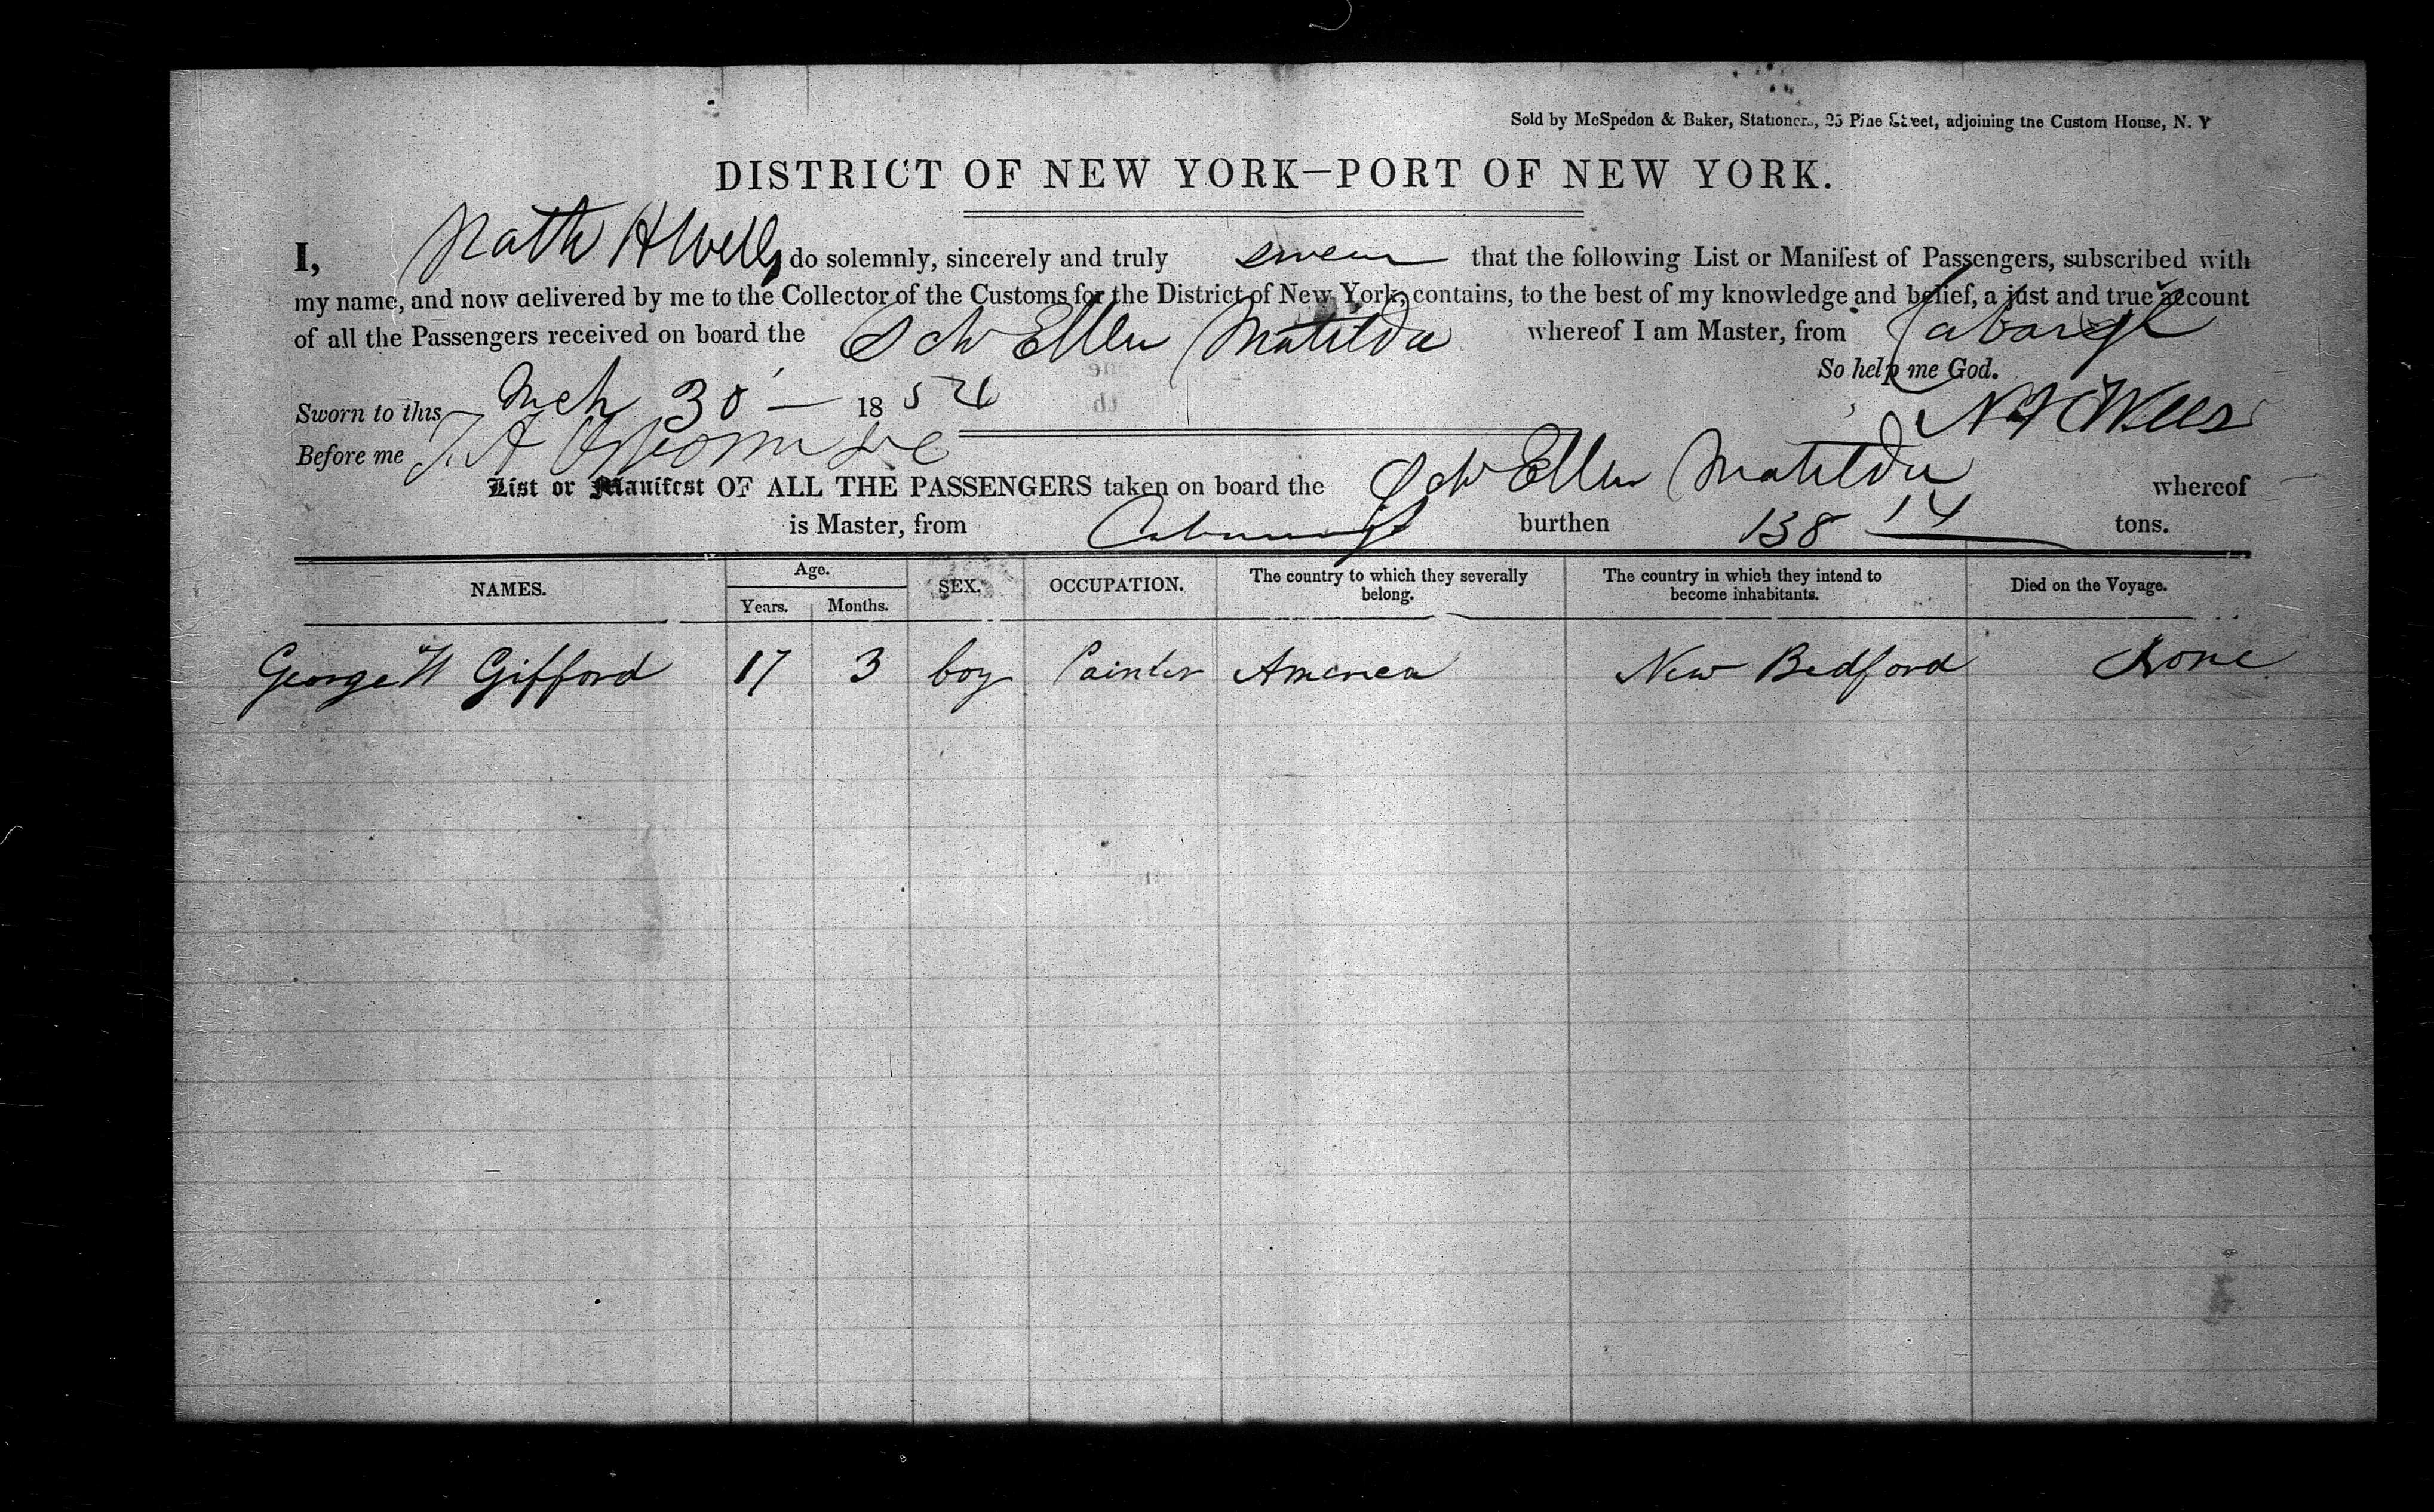 Sold by McSpedon & Baker, Stationers, 25 Pine Street, adjoining the Custom House, N. Y
DISTRICT OF NEW YORK—PORT OF NEW YORK.
I, Nath H Wells do solemnly, sincerely and truly swear that the following List or Manifest of Passengers, subscribed with
my name, and now delivered by me to the Collector of the Customs for the District of New York, contains, to the best of my knowledge and belief, a just and true account
of all the Passengers received on board the Sch Ellen Matilda whereof I am Master, from
So help me God.
Sworn to this Mch 30 — 1854
N H Wells
Before me
List or Manifest OF ALL THE PASSENGERS taken on board the Sch Ellen Matilda whereof
is Master, from burthen 138 14 tons.
NAMES. Age. Years. Months. SEX. OCCUPATION. The country to which they severally belong. The country in which they intend to become inhabitants. Died on the Voyage.
George W Gifford 17 3 boy Painter America New Bedford None